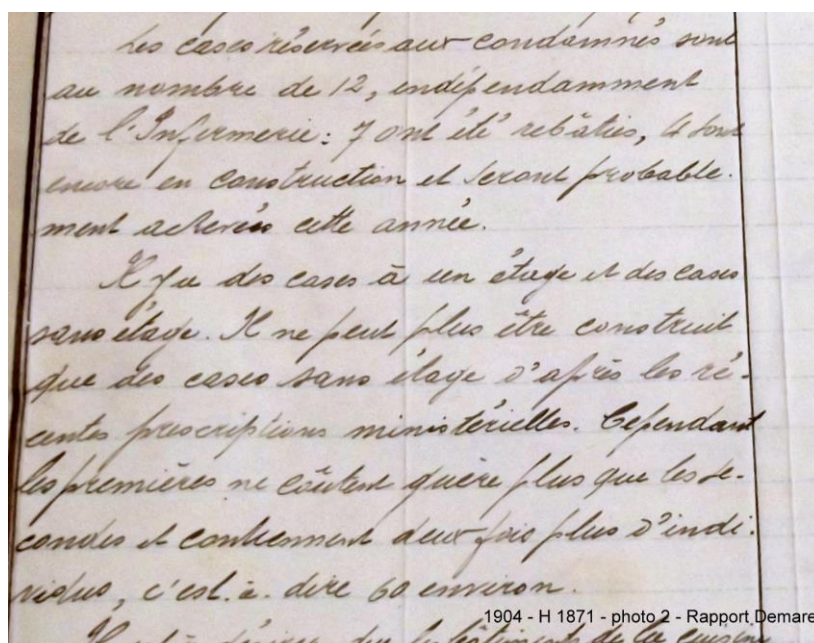 Les cases réservées aux condamnés sont
au nombre de 12, indépendamment
de l'Infirmerie : 7 ont été rebâties, 4 sont
encore en construction et seront probable-
ment achevées cette année.
Il y a des cases à un étage et des cases
sans étage. Il ne peut plus être construit
que des cases sans étage d'après les ré-
centes prescriptions ministérielles. Cependant
les premières ne coûtent guère plus que les se-
condes et contiennent deux fois plus d'indi-
vidus, c'est-à-dire 60 environ.
1904 - H 1871 - photo 2 - Rapport Demare
bâtiments de la